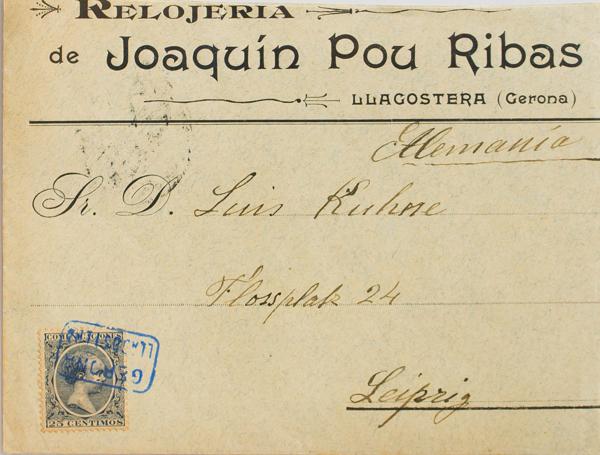 RELOJERIA
de Joaquín Pou Ribas
LLAGOSTERA (Gerona)
Alemania
Sr. D. Luis Kuhne
Flossplatz 24
Leipzig
COMUNICACIONES
LLAGOSTERA
GERONA
25 CENTIMOS